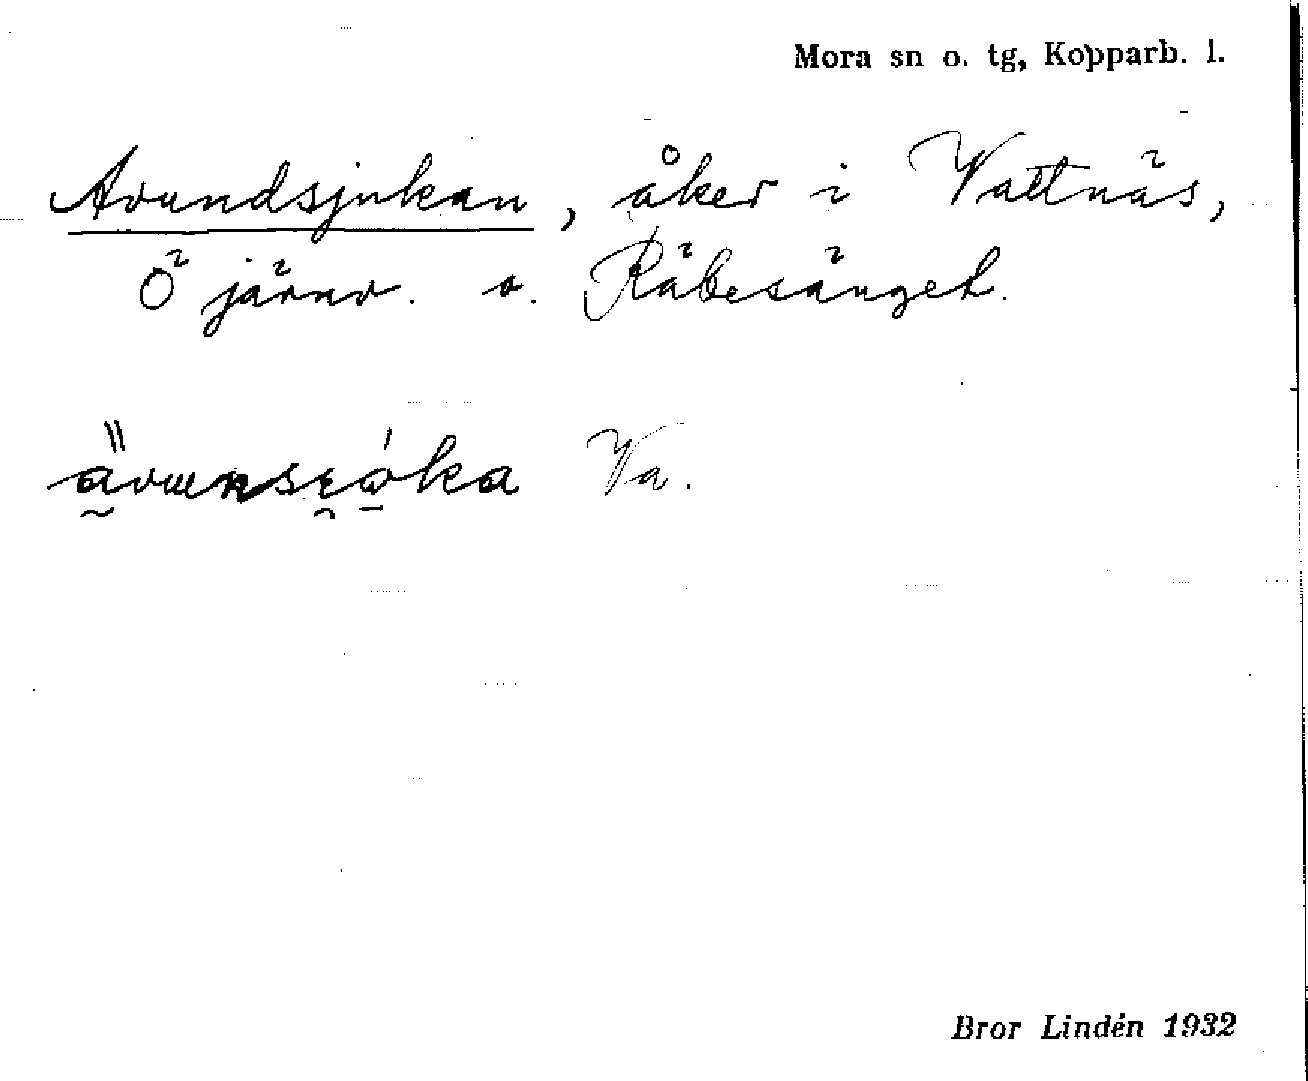 Mora sn o. tg, Kopparb. l.
Avundsjukan, åker i Vattnäs,
Ö järnv. o. Räbesänget.
Va.
Bror Lindén 1932